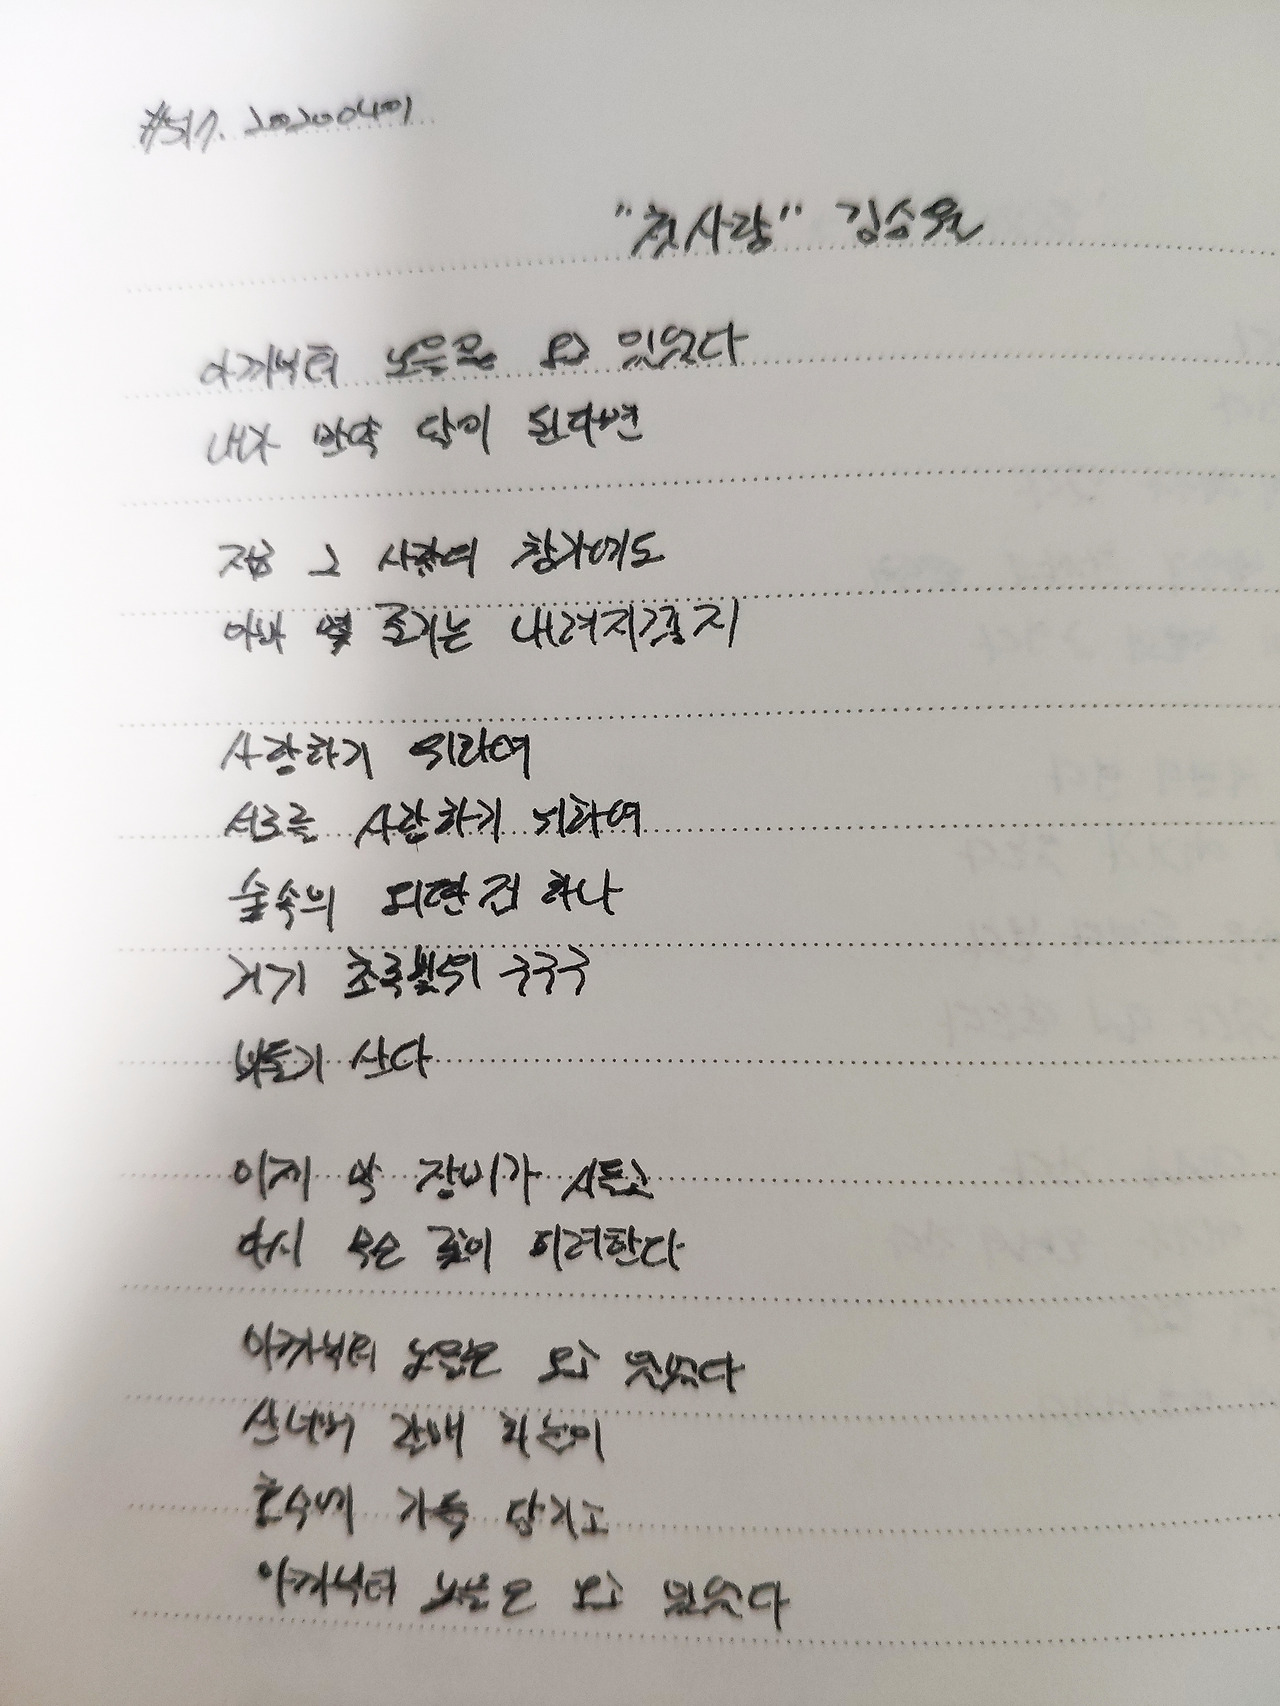 #517. 20200401
"첫사랑" 김소월
아까부터 노을은 오고 있었다
내가 만약 달이 된다면
지금 그 사람의 창가에도
아마 몇 줄기는 내려지겠지
사랑하기 위하여
서로를 사랑하기 위하여
숲속의 외딴 집 하나
거기 초록빛위 구구구
비둘기 산다
이제 막 장미가 시들고
다시 무슨 꽃이 피려한다
아까부터 노을은 오고 있었다
산너머 갈매 하늘이
호수에 가득 담기고
아까부터 노을은 오고 있었다